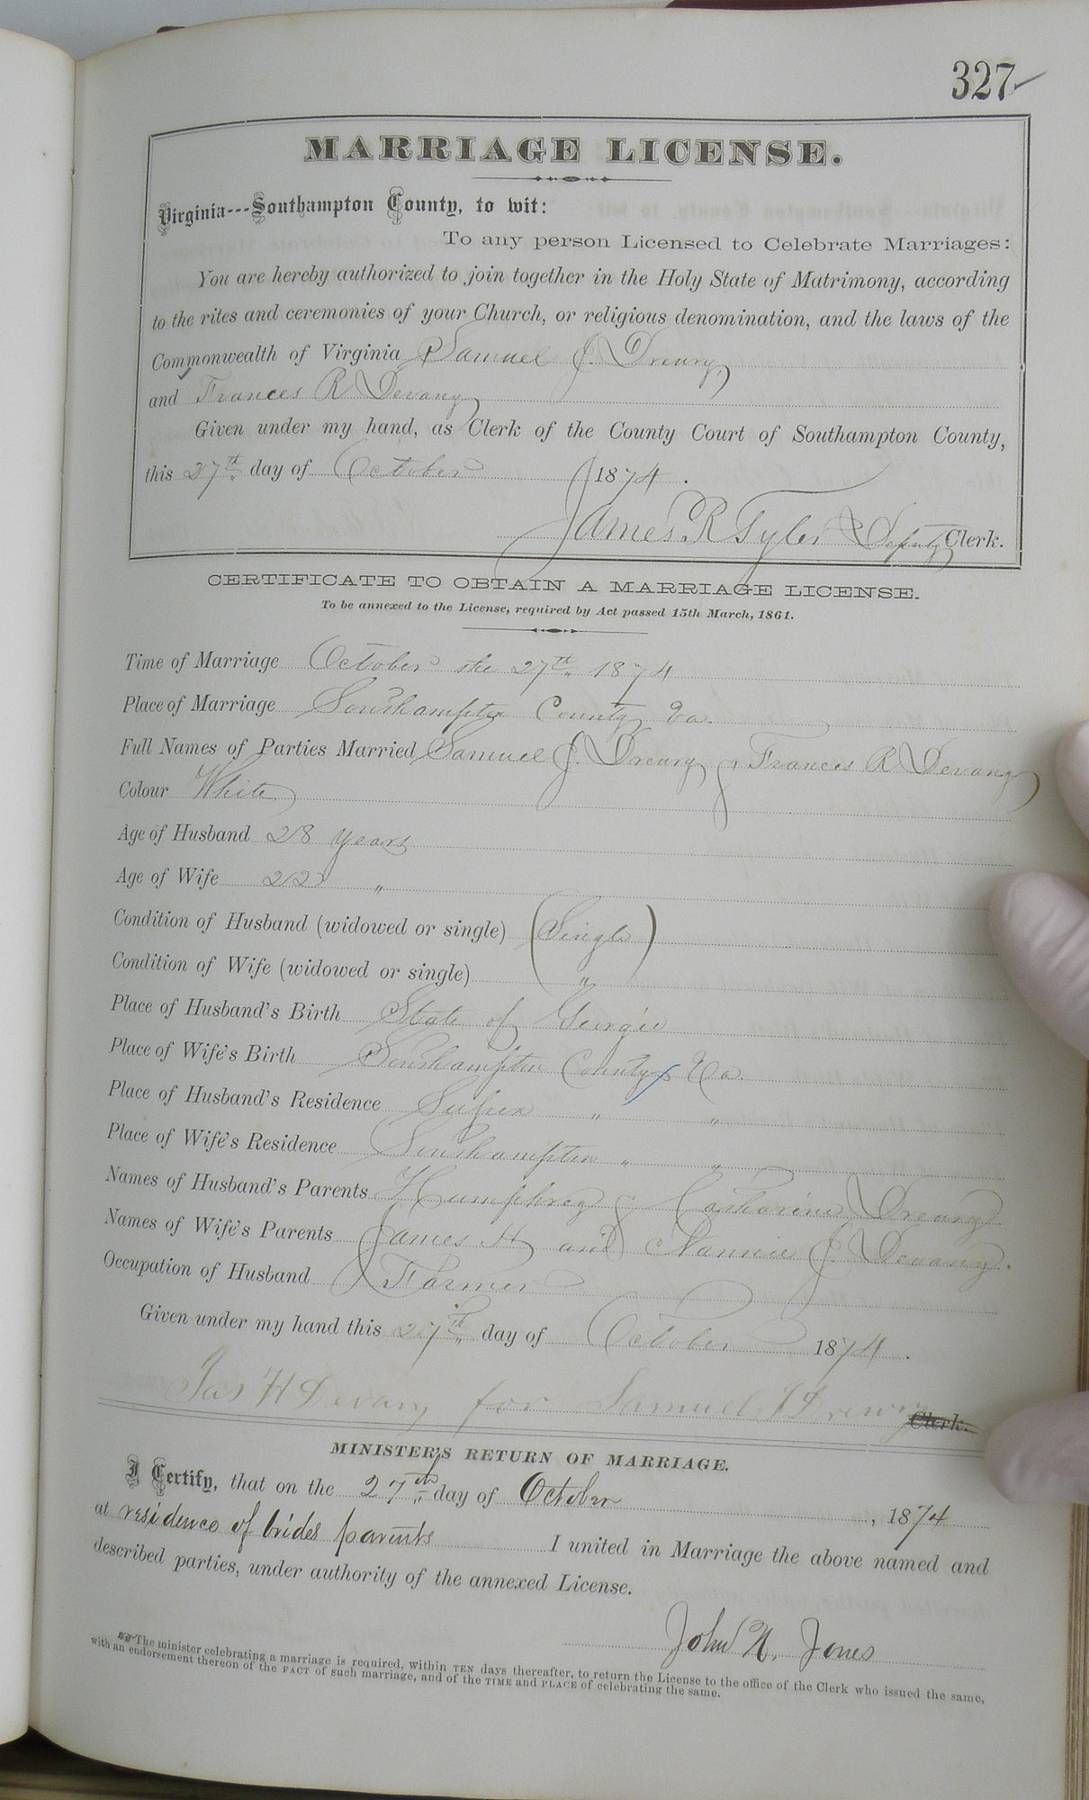 327
MARRIAGE LICENSE.
Virginia---Southampton County, to wit:
To any person Licensed to Celebrate Marriages:
You are hereby authorized to join together in the Holy State of Matrimony, according
to the rites and ceremonies of your Church, or religious denomination, and the laws of the
Commonwealth of Virginia Samuel J. Drewry,
and Frances R Devany
Given under my hand, as Clerk of the County Court of Southampton County,
this 27th day of October 1874.
James R Tyler Deputy Clerk.
CERTIFICATE TO OBTAIN A MARRIAGE LICENSE.
To be annexed to the License, required by Act passed 15th March, 1861.
Time of Marriage October the 27th 1874
Place of Marriage Southampton County Va.
Full Names of Parties Married Samuel J. Drewry & Frances R Devany
Colour White
Age of Husband 28 years
Age of Wife 22 "
Condition of Husband (widowed or single) (Single)
Condition of Wife (widowed or single) "
Place of Husband's Birth State of Georgia
Place of Wife's Birth Southampton County Va.
Place of Husband's Residence Sussex " "
Place of Wife's Residence Southampton " "
Names of Husband's Parents Humphrey & Catharine Drewry
Names of Wife's Parents James H and Nannie J. Devany.
Occupation of Husband Farmer
Given under my hand this 27th day of October 1874.
Jas H Devany for Samuel J Drewry Clerk.
MINISTER'S RETURN OF MARRIAGE.
I Certify, that on the 27th day of October, 1874
at residence of brides parents I united in Marriage the above named and
described parties, under authority of the annexed License.
John N. Jones
The minister celebrating a marriage is required, within TEN days thereafter, to return the License to the office of the Clerk who issued the same,
with an endorsement thereon of the FACT of such marriage, and of the TIME and PLACE of celebrating the same.